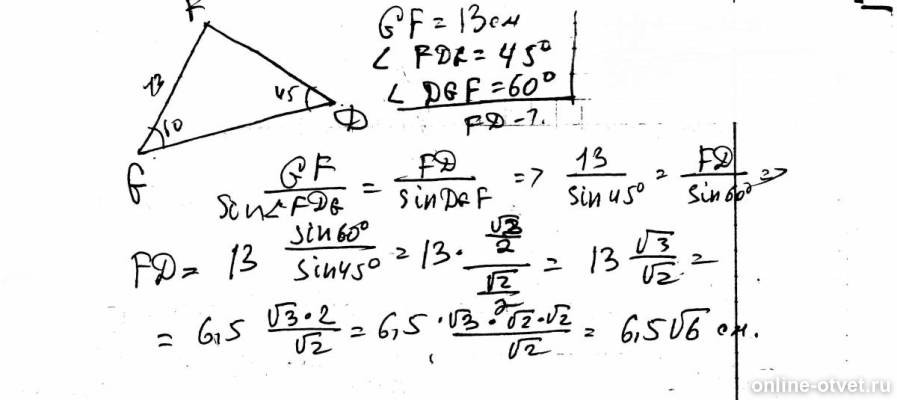 F
GF = 13 см
∠ FDG = 45°
∠ DGF = 60°
FD - ?
13
45
60
D
G
GF / sin∠FDG = FD / sin DGF => 13 / sin 45° = FD / sin 60° =>
FD = 13 sin 60° / sin 45° = 13 · (√3/2) / (√2/2) = 13 √3/√2 =
= 6,5 √3·2 / √2 = 6,5 · √3·√2·√2 / √2 = 6,5√6 см.
online-otvet.ru